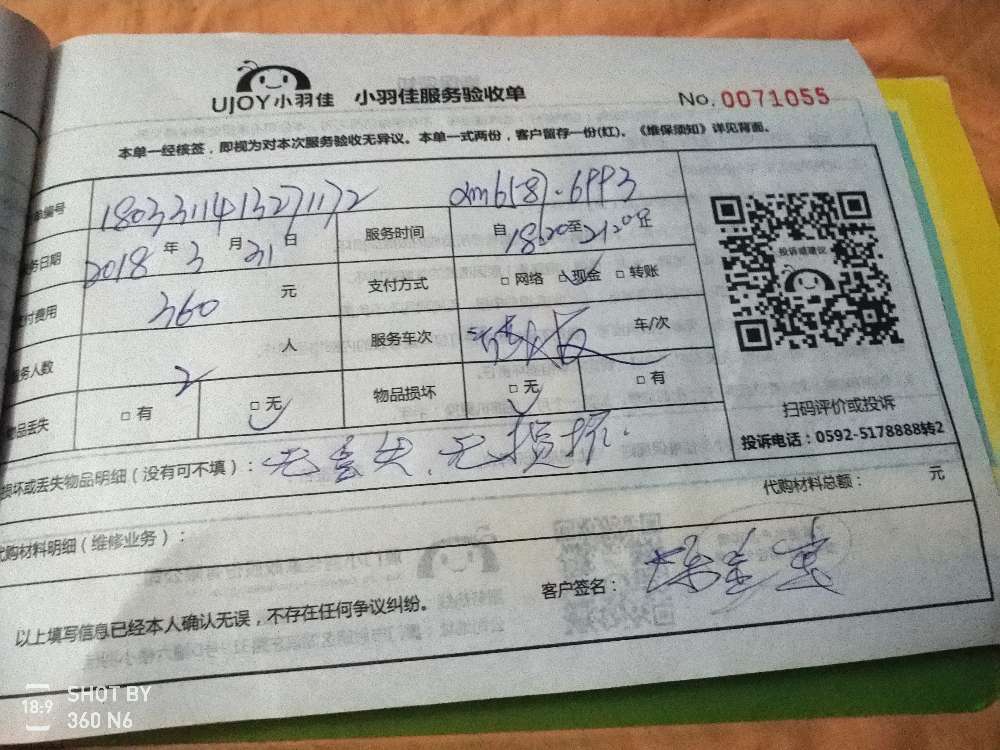 UJOY小羽佳 小羽佳服务验收单 No. 0071055
本单一经核签，即视为对本次服务验收无异议。本单一式两份，客户留存一份(红)。《维保须知》详见背面。
编号 1803311413271172
务日期 2018 年 3 月 31 日 服务时间 自 18:20 至 21:20 止
付费用 360 元 支付方式 □ 网络 □ 现金 □ 转账
务人数 2 人 服务车次 车/次
物品丢失 □ 有 □ 无 物品损坏 □ 无 □ 有
投诉或建议
扫码评价或投诉
投诉电话：0592-5178888转2
损坏或丢失物品明细（没有可不填）： 无丢失、无损坏.
代购材料总额： 元
代购材料明细（维修业务）：
以上填写信息已经本人确认无误，不存在任何争议纠纷。 客户签名：
18:9 SHOT BY
360 N6